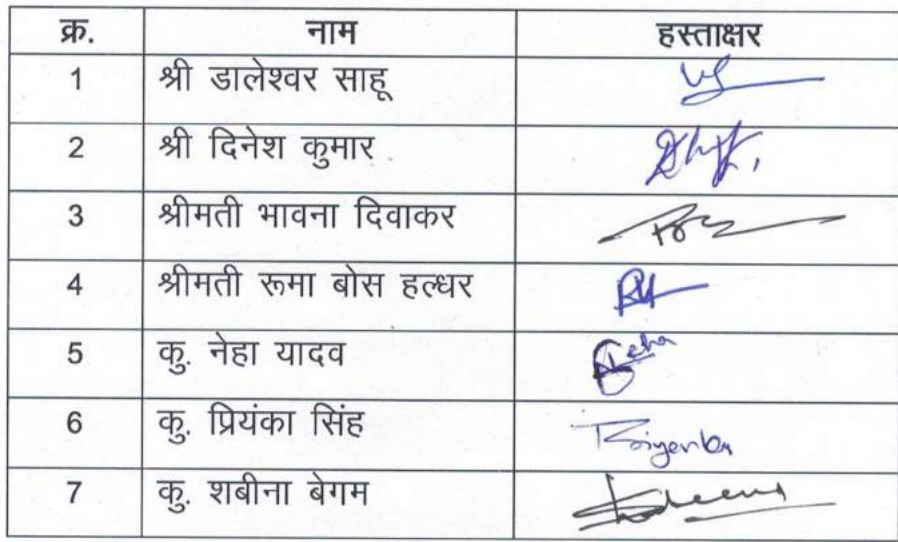 क्र. नाम हस्ताक्षर
1 श्री डालेश्वर साहू
2 श्री दिनेश कुमार
3 श्रीमती भावना दिवाकर
4 श्रीमती रूमा बोस हल्धर
5 कु. नेहा यादव Neha
6 कु. प्रियंका सिंह Priyanka
7 कु. शबीना बेगम